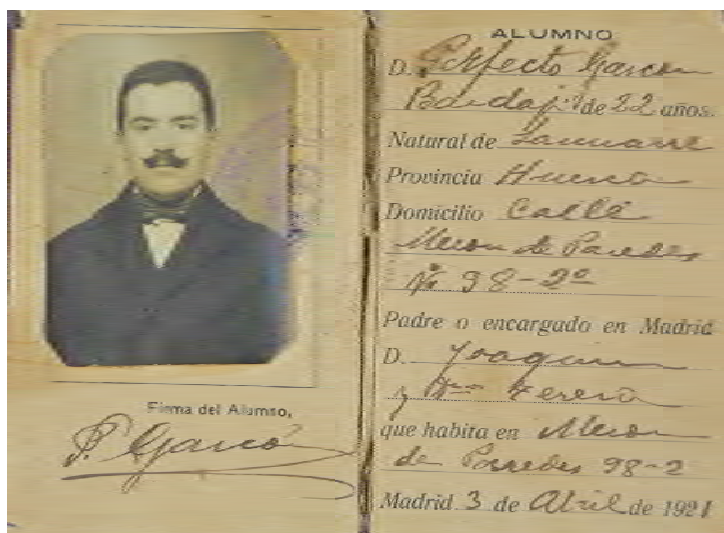 Firma del Alumno,
P. Garcón
ALUMNO
D. Perfecto Garcón
Bandaji de 22 años.
Natural de
Provincia Huesca
Domicilio Calle
Meson de Paredes
No 98-2º
Padre o encargado en Madrid
D. Joaquin
y Teresa
que habita en Meson
de Paredes 98-2
Madrid 3 de Abril de 1921